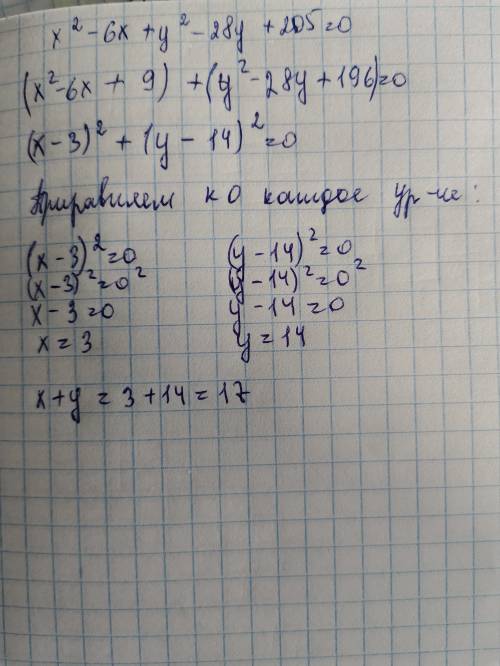 x² - 6x + y² - 28y + 205 = 0
(x² - 6x + 9) + (y² - 28y + 196) = 0
(x - 3)² + (y - 14)² = 0
Приравняем к 0 каждое ур-ие:
(x - 3)² = 0 (y - 14)² = 0
(x - 3)² = 0² (y - 14)² = 0²
x - 3 = 0 y - 14 = 0
x = 3 y = 14
x + y = 3 + 14 = 17